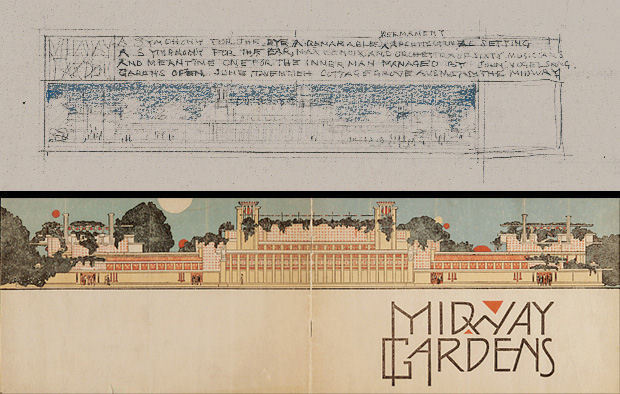 MIDWAY
GARDENS
PERMANENT
A SYMPHONY FOR THE EYE A REMARKABLE ARCHITECTURAL SETTING
A SYMPHONY FOR THE EAR, MAX BENDIX AND ORCHESTRA OF SIXTY MUSICIANS
AND MEANTIME ONE FOR THE INNER MAN MANAGED BY JOHN VOGELSANG.
GARDENS OPEN JUNE TWENTIETH COTTAGE GROVE AVENUE AND THE MIDWAY
MIDWAY
GARDENS